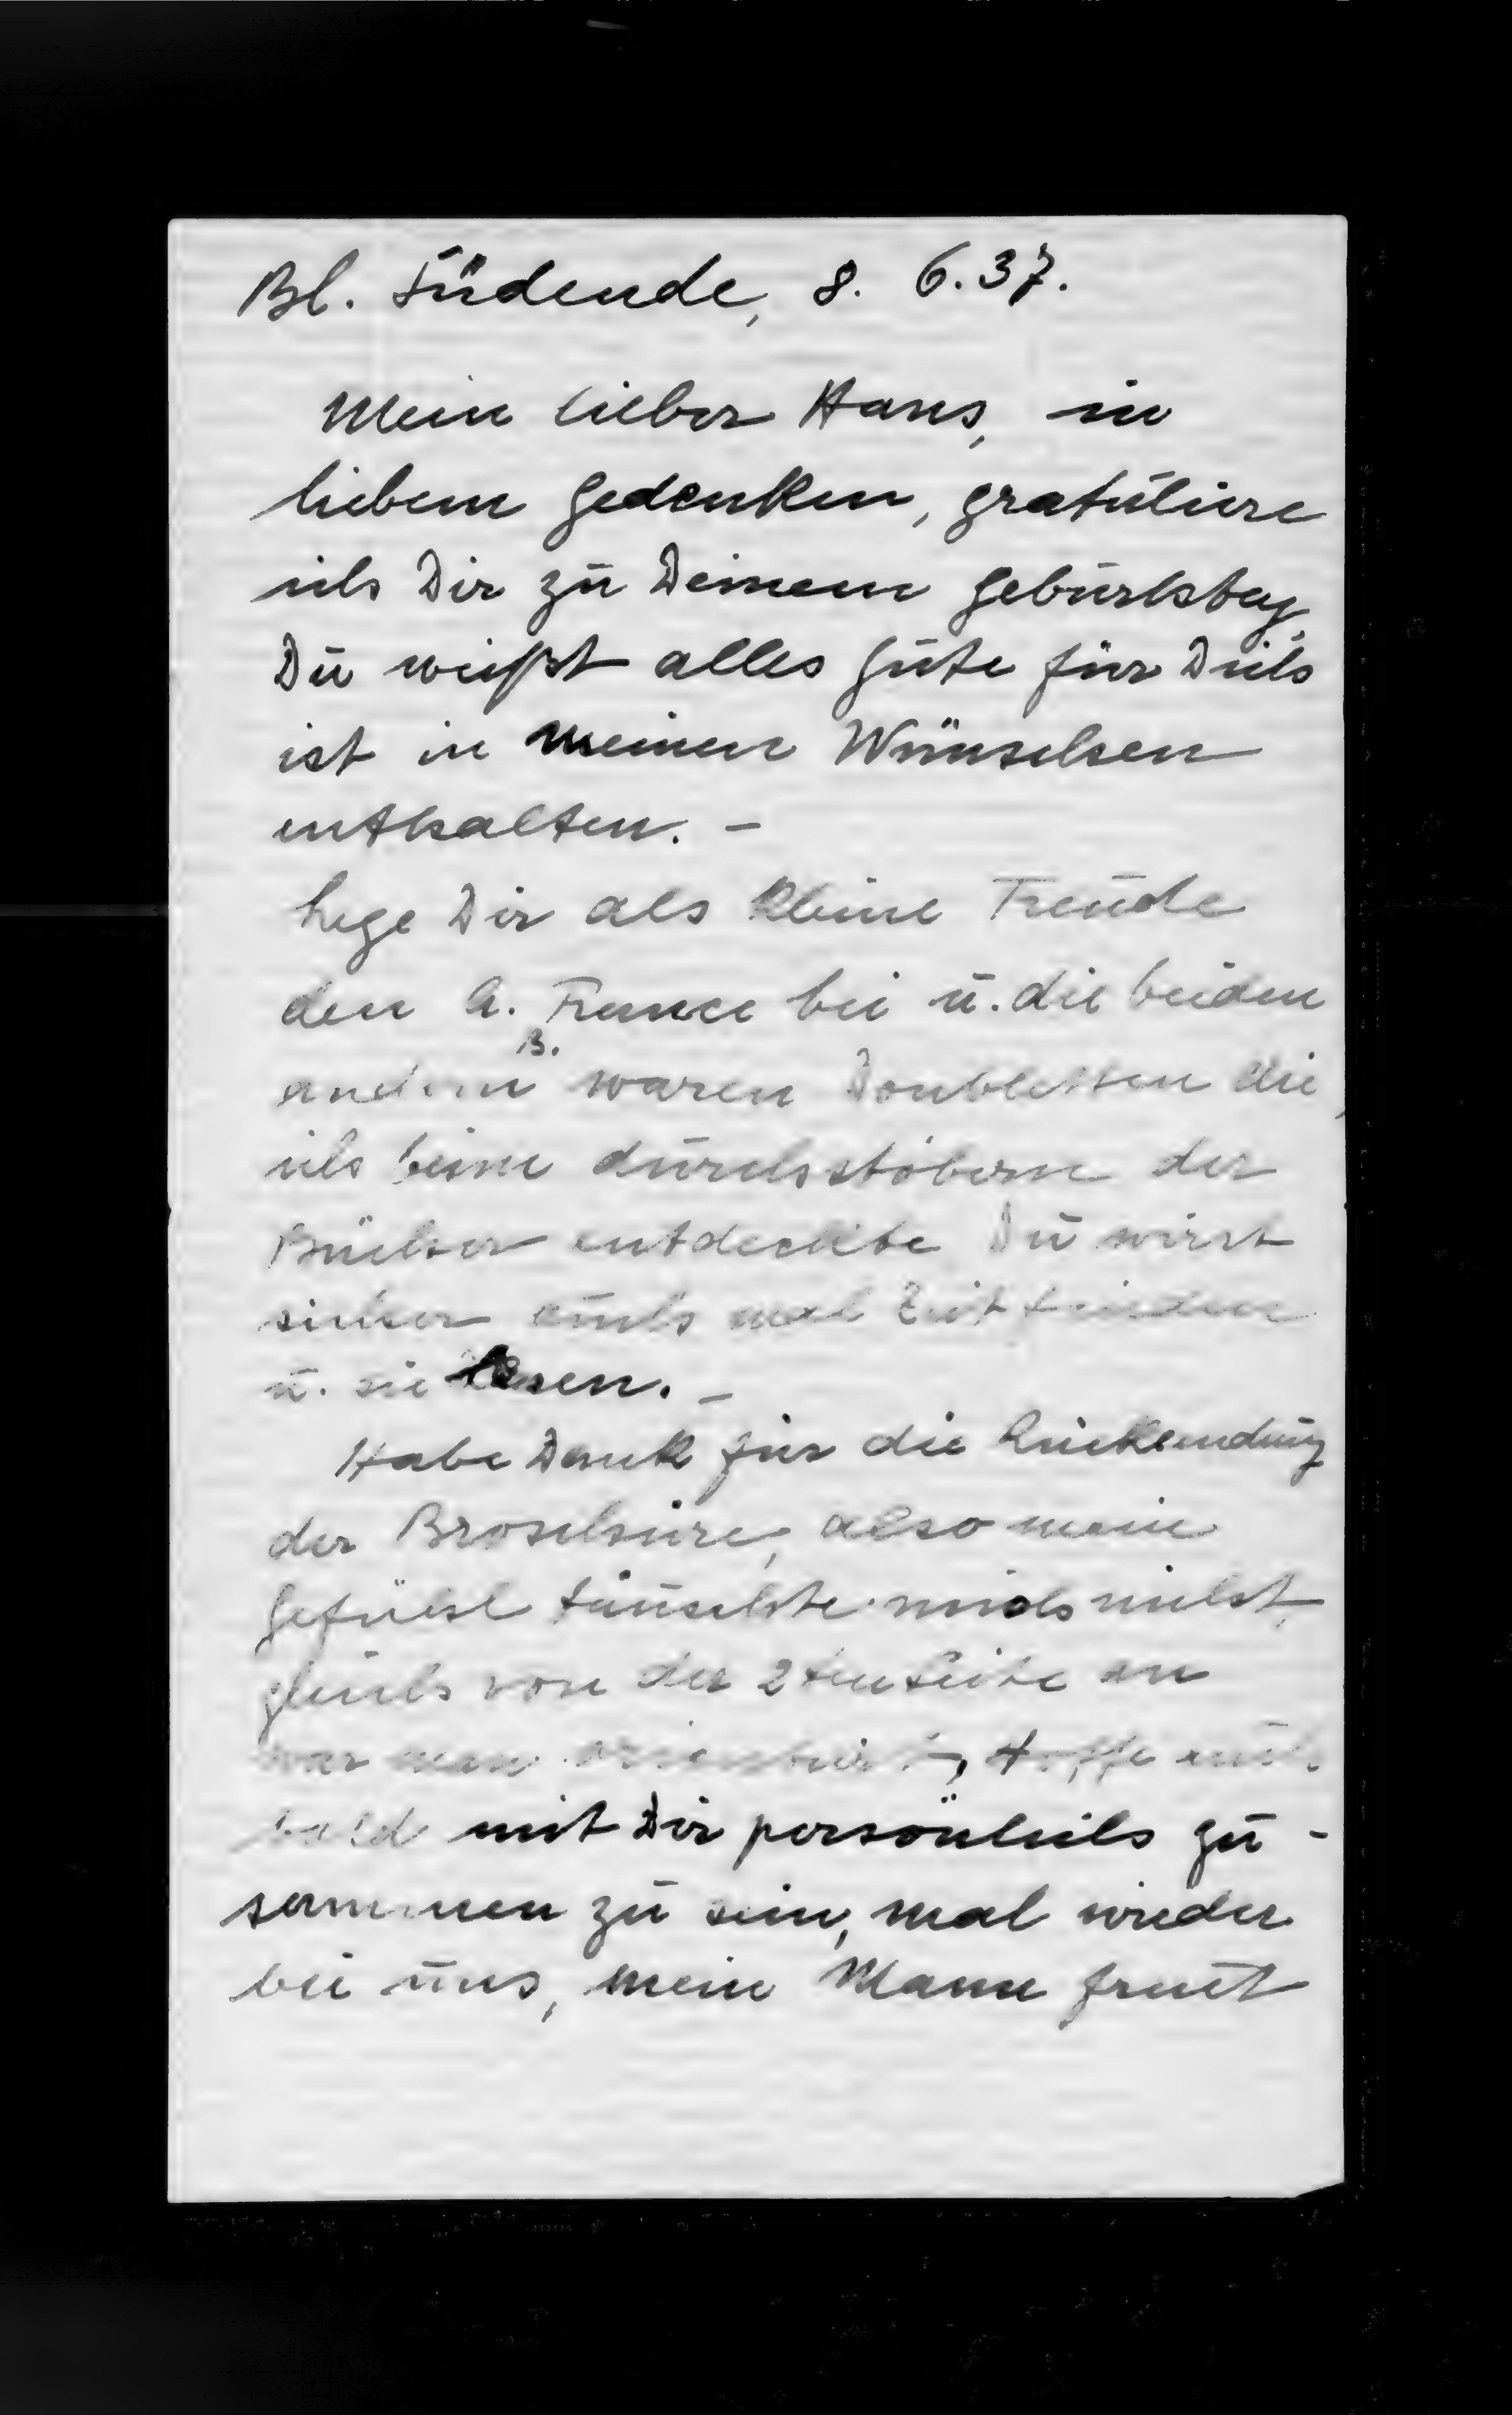 Bl. Südende, 8. 6.37.
Mein lieber Hans, in
liebem Gedenken, gratuliere
ich Dir zu Deinem Geburtstag,
Du weißt alles Gute für Dich
ist in meinen Wünschen
enthalten. –
Lege Dir als kleine Freude
den A. France bei u. die beiden
andern B. waren Doubletten die,
ich beim durchstöbern der
Bücher entdeckte Du wirst
sicher auch mal Zeit finden
u. sie lesen. –
Habe Dank für die Rücksendung
der Broschüre, also mein
Gefühl täuschte mich nicht,
gleich von der 2ten Seite an
war man orientiert, Hoffe auch
bald mit Dir persönlich zu-
sammen zu sein, mal wieder
bei uns, mein Mann freut